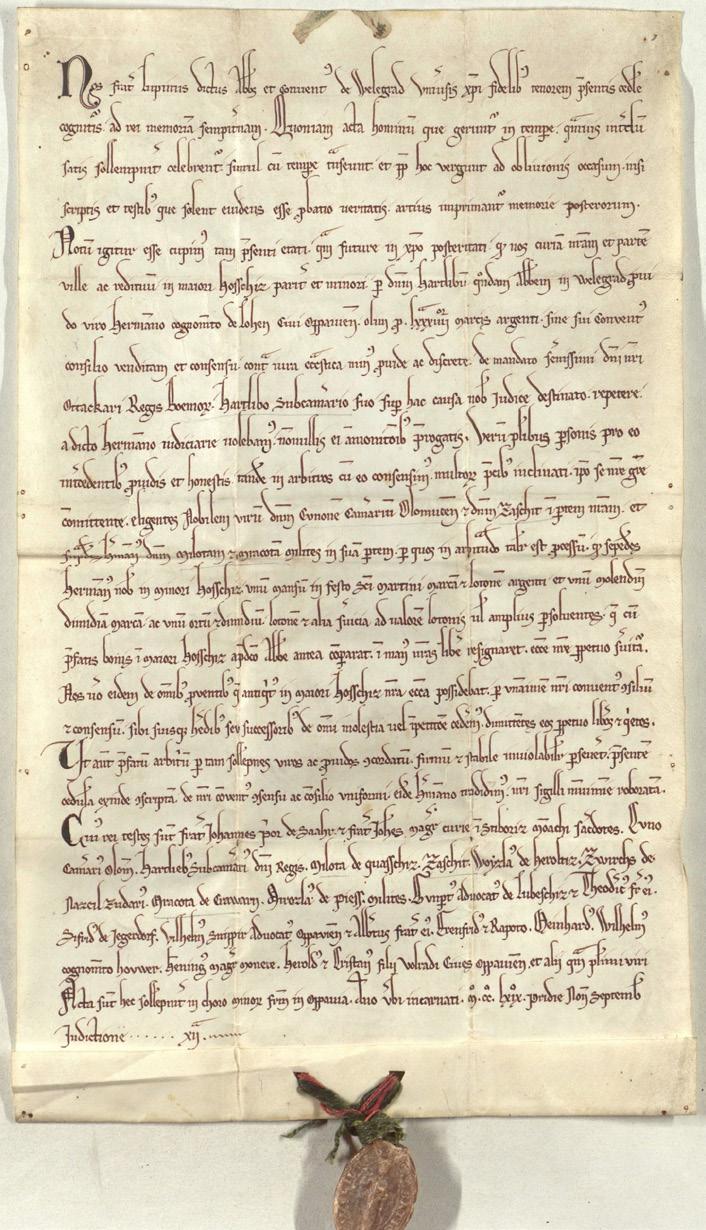 Nos frat̄ bipinus dictus Abb̄s et Conuent᾿ de Welegrad Vniu̓sis xp̄i fidelib᾿ tenorem p̄sentis cedl̄e
cognit᾿is ad rei memoriā sempit̓nam. Quoniam acta hominū que gerunt᾿ in tempe.
satis sollempnit̓ celebrent᾿ simul cū tempe tᷓnseunt. et pp̄ hoc vergunt ad obliuionis occasum. nisi
scriptis et testib᾿ que solent euidens esse p̱batio ueritatis. artius imprimant᾿ memorie posterorum.
Notū igitur esse cupim᾿ tam p̄senti etati. qᷓm future in xp̄o posteritati. qͥ nos curiā nr̄am et partē
ville ac redituū in maiori Hosschiz parit̓ et minori. p̱ dn̄m Hartlibū qͦndam Abb̄em in Welegrad p̱ui
do viro Hermāno cognom̄to de Lohen Ciui Oppauien̄. olim p̱. lxxxiiii marcis argenti. sine sui Conuent᾿
consilio venditam et consensu. contᷓ iura ecc̄astica nim᾿ p̱uide ac discrete. de mandato s̓enissimi dn̄i nr̄i
Ottackari Regis Boemoꝝ. Hartlibo Subcam̓ario suo sup̱ hac causa nob᾿ Iudice destinato. repetere.
a dicto Hermāno iudiciarie uolebam᾿. nōnullis ei āmonic̄oib᾿ p̱rogatis. Verū pl̓ibus p̱sonis pro eo
int̓cedentib᾿ p̱uidis et honestis tandē in arbitros cū eo consensim᾿. multoꝝ p̄cib᾿ inclinati. ip̄o se nr̄e gr̄e
cōmittente. eligentes Nobilem virū dn̄m Cunonē Cam̓ariū Olomucen̄ ⁊ dn̄m Zaschit ī p̱tem nr̄am. et
dn̄m Milotam ⁊ Mracotā milites in suā p̱tem. p̱ quos in arbit̓do talit̓ est p̱cessū. qͥ sepedc̄s
Hermān᾿ nob᾿ in minori Hosschiz. vnū mansū in festo Sc̄i Martini marcā ⁊ lotonē argenti et vnū molendin̄
dimidiā marcā. ac vnū ortū ⁊ dimidiū. lotonē ⁊ alia s̓uicia. ad ualorē lotonis ul̓ amplius p̱soluentes. q̄ cū
p̄fatis bonis ī maiori Hosschiz ap̱dc̄o Abb̄e antea cōparat. ī man᾿ nr̄as lib̓e resignaret. ecc̄e nr̄e p̱petuo s̓uit᾿a.
Nos u̓o eidem de om̄ib᾿ p̱uentib᾿ q̄ antiqͥt᾿ in maiori Hosschiz nr̄a ecc̄a possidebat. p̱ vnanimē nr̄i conuent᾿ ↄsiliū
⁊ consensū. sibi suisqꝫ h̓edib᾿ seu successorib᾿ de om̄i molestia uel ip̱etic̄oe cedem᾿. dimittētes eos p̱petuo lib̓os ⁊ qͥetos.
Ut aut̄ p̄fatū arbitriū p̱ tam sollepnes viros ac p̱uidos ↄcordatū. firmū ⁊ stabile inuiolabilit̓ p̱seu̓et. p̄sentē
cedulā exinde ↄscriptā. de nr̄i cōuent᾿ ↄsensu ac cōsilio vniformi. eidē h̓māno tradidim᾿. nr̄i sigilli munimine roboratā.
Cui᾿ rei testes sūt frat̄ Iohannes p̓or de Saahr. ⁊ frat̄ Ioh̄es. mag̓r curie ī Stiboriz m̄oachi sac̓dotes. Cuno
Cam̓ari᾿ Olom̄. Hartlieb᾿ Subcam̓ari᾿ dn̄i Regis. Milota de quasschiz. Zaschit. Woyzla᾿ de heroltiz. Zwirchs de.
Narcil Zudari᾿. Mracota de Crwarn. Mirozla᾿ de piess. milites. Cunr̓t᾿ Aduocat᾿ de Lubeschiz ⁊ Theodr̓ic᾿ fr̄ ei᾿.
Sifrid᾿ de Iegerdorf. Vilhelm᾿ Snippir Aduocat᾿ Oppauien̄ ⁊ Alb̓tus frat̄ ei᾿. Erenfrid᾿ ⁊ Rapoto. Meinhard᾿. Wilhelm᾿
cognom̄to houwer. Hening᾿ mag̓r monete. Herold᾿ ⁊ Cristan᾿ filii Volradi Ciues Oppauien̄. et alii qᷓm pl̓imi viri
Acta sūt hec sollepnit̓ in choro minoꝝ frm̄ in Oppauia. Anno v̓bi incarnati. M. CC. lxix. pridie Non̄ Septemb᾿
Indictione ...... xii.ᷓ ......